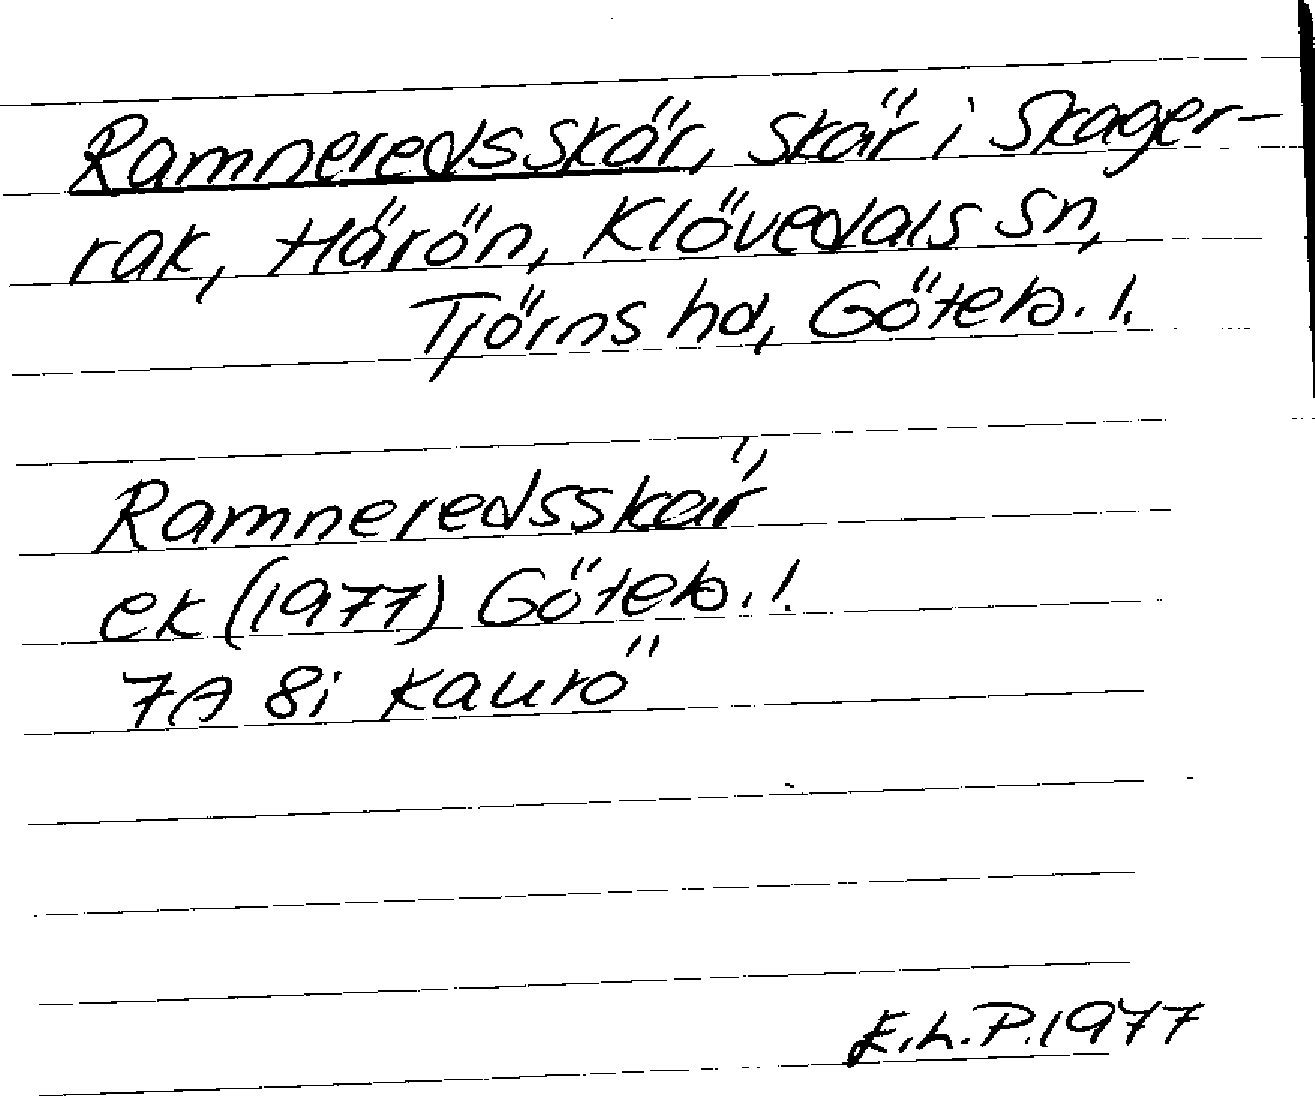 Ramneredsskär, skär i Skager-
rak, Härön, Klövedals sn,
Tjörns hd, Göteb. l.
Ramneredsskär
ek (1977) Göteb. l.
7A 8i Kaurö
E.L.P. 1977